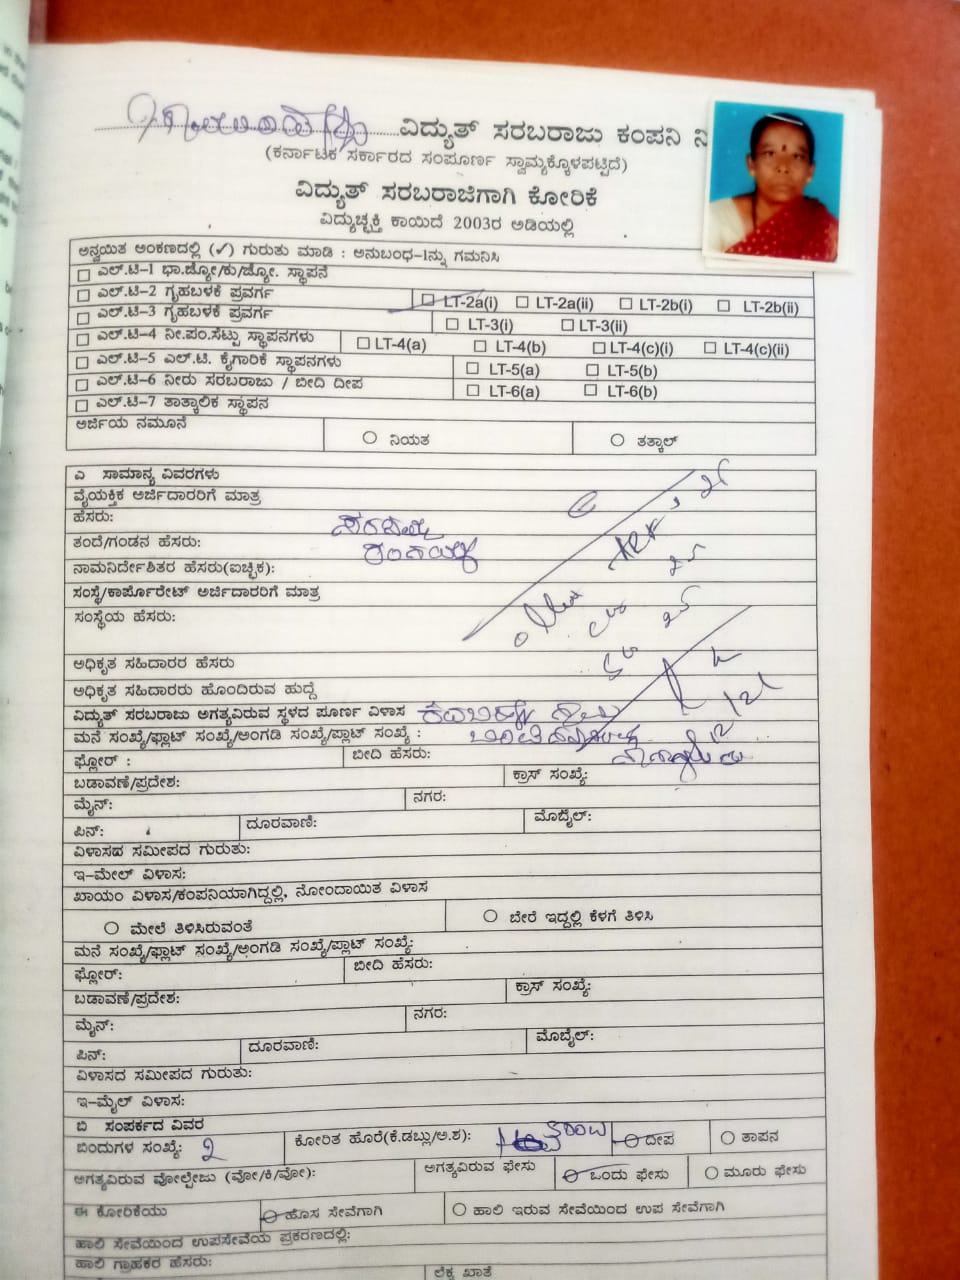 ವಿದ್ಯುತ್ ಸರಬರಾಜು ಕಂಪನಿ ನಿ
(ಕರ್ನಾಟಕ ಸರ್ಕಾರದ ಸಂಪೂರ್ಣ ಸ್ವಾಮ್ಯಕ್ಕೊಳಪಟ್ಟಿದೆ)
ವಿದ್ಯುತ್ ಸರಬರಾಜಿಗಾಗಿ ಕೋರಿಕೆ
ವಿದ್ಯುಚ್ಛಕ್ತಿ ಕಾಯಿದೆ 2003ರ ಅಡಿಯಲ್ಲಿ
ಅನ್ವಯಿತ ಅಂಕಣದಲ್ಲಿ (✓) ಗುರುತು ಮಾಡಿ : ಅನುಬಂಧ-1ನ್ನು ಗಮನಿಸಿ
ಎಲ್.ಟಿ-1 ಭಾ.ಜ್ಯೋ/ಕು/ಜ್ಯೋ. ಸ್ಥಾಪನೆ
ಎಲ್.ಟಿ-2 ಗೃಹಬಳಕೆ ಪ್ರವರ್ಗ LT-2a(i) LT-2a(ii) LT-2b(i) LT-2b(ii)
ಎಲ್.ಟಿ-3 ಗೃಹಬಳಕೆ ಪ್ರವರ್ಗ LT-3(i) LT-3(ii)
ಎಲ್.ಟಿ-4 ನೀ.ಪಂ.ಸೆಟ್ಟು ಸ್ಥಾಪನಗಳು LT-4(a) LT-4(b) LT-4(c)(i) LT-4(c)(ii)
ಎಲ್.ಟಿ-5 ಎಲ್.ಟಿ. ಕೈಗಾರಿಕೆ ಸ್ಥಾಪನಗಳು LT-5(a) LT-5(b)
ಎಲ್.ಟಿ-6 ನೀರು ಸರಬರಾಜು / ಬೀದಿ ದೀಪ LT-6(a) LT-6(b)
ಎಲ್.ಟಿ-7 ತಾತ್ಕಾಲಿಕ ಸ್ಥಾಪನ
ಅರ್ಜಿಯ ನಮೂನೆ ನಿಯತ ತತ್ಕಾಲ್
ಎ ಸಾಮಾನ್ಯ ವಿವರಗಳು
ವೈಯಕ್ತಿಕ ಅರ್ಜಿದಾರರಿಗೆ ಮಾತ್ರ
ಹೆಸರು:
ತಂದೆ/ಗಂಡನ ಹೆಸರು:
ನಾಮನಿರ್ದೇಶಿತರ ಹೆಸರು(ಐಚ್ಛಿಕ):
ಸಂಸ್ಥೆ/ಕಾರ್ಪೊರೇಟ್ ಅರ್ಜಿದಾರರಿಗೆ ಮಾತ್ರ
ಸಂಸ್ಥೆಯ ಹೆಸರು:
ಅಧಿಕೃತ ಸಹಿದಾರರ ಹೆಸರು
ಅಧಿಕೃತ ಸಹಿದಾರರು ಹೊಂದಿರುವ ಹುದ್ದೆ
ವಿದ್ಯುತ್ ಸರಬರಾಜು ಅಗತ್ಯವಿರುವ ಸ್ಥಳದ ಪೂರ್ಣ ವಿಳಾಸ
ಮನೆ ಸಂಖ್ಯೆ/ಫ್ಲಾಟ್ ಸಂಖ್ಯೆ/ಅಂಗಡಿ ಸಂಖ್ಯೆ/ಪ್ಲಾಟ್ ಸಂಖ್ಯೆ :
ಫ್ಲೋರ್ : ಬೀದಿ ಹೆಸರು:
ಬಡಾವಣೆ/ಪ್ರದೇಶ: ಕ್ರಾಸ್ ಸಂಖ್ಯೆ:
ಮೈನ್: ನಗರ:
ಪಿನ್: ದೂರವಾಣಿ: ಮೊಬೈಲ್:
ವಿಳಾಸದ ಸಮೀಪದ ಗುರುತು:
ಇ-ಮೇಲ್ ವಿಳಾಸ:
ಖಾಯಂ ವಿಳಾಸ/ಕಂಪನಿಯಾಗಿದ್ದಲ್ಲಿ, ನೋಂದಾಯಿತ ವಿಳಾಸ
ಮೇಲೆ ತಿಳಿಸಿರುವಂತೆ ಬೇರೆ ಇದ್ದಲ್ಲಿ ಕೆಳಗೆ ತಿಳಿಸಿ
ಮನೆ ಸಂಖ್ಯೆ/ಫ್ಲಾಟ್ ಸಂಖ್ಯೆ/ಅಂಗಡಿ ಸಂಖ್ಯೆ/ಪ್ಲಾಟ್ ಸಂಖ್ಯೆ:
ಫ್ಲೋರ್: ಬೀದಿ ಹೆಸರು:
ಬಡಾವಣೆ/ಪ್ರದೇಶ: ಕ್ರಾಸ್ ಸಂಖ್ಯೆ:
ಮೈನ್: ನಗರ:
ಪಿನ್: ದೂರವಾಣಿ: ಮೊಬೈಲ್:
ವಿಳಾಸದ ಸಮೀಪದ ಗುರುತು:
ಇ-ಮೈಲ್ ವಿಳಾಸ:
ಬಿ ಸಂಪರ್ಕದ ವಿವರ
ಬಿಂದುಗಳ ಸಂಖ್ಯೆ: 2 ಕೋರಿತ ಹೊರೆ(ಕೆ.ಡಬ್ಲು/ಅ.ಶ): ದೀಪ ತಾಪನ
ಅಗತ್ಯವಿರುವ ವೋಲ್ಟೇಜು (ವೋ/ಕಿ/ವೋ): ಅಗತ್ಯವಿರುವ ಫೇಸು ಒಂದು ಫೇಸು ಮೂರು ಫೇಸು
ಈ ಕೋರಿಕೆಯು ಹೊಸ ಸೇವೆಗಾಗಿ ಹಾಲಿ ಇರುವ ಸೇವೆಯಿಂದ ಉಪ ಸೇವೆಗಾಗಿ
ಹಾಲಿ ಸೇವೆಯಿಂದ ಉಪಸೇವೆಯ ಪ್ರಕರಣದಲ್ಲಿ:
ಹಾಲಿ ಗ್ರಾಹಕರ ಹೆಸರು:
ಲೆಕ್ಕ ಖಾತೆ